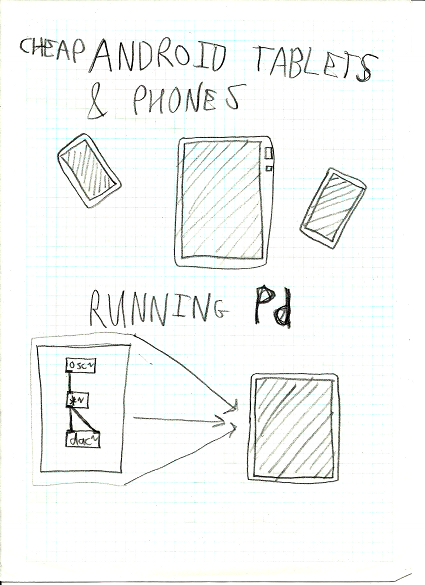 CHEAP ANDROID TABLETS
& PHONES
RUNNING Pd
osc~
*~
dac~